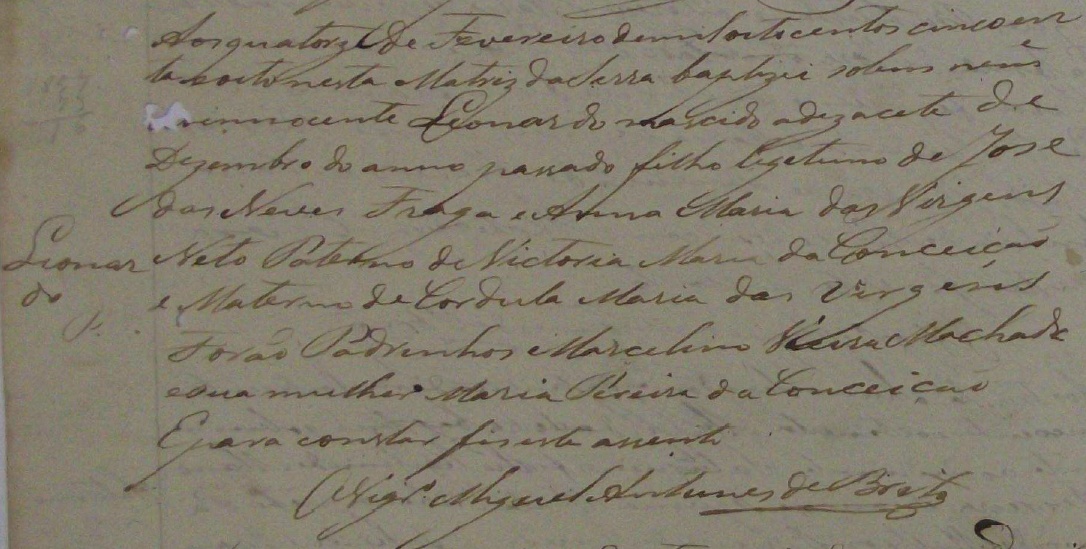 Aos quatorze de Fevereiro de mil oito centos cincoen
ta e oito nesta Matriz da Serra baptizei solemnem
innocente Leonardo nascido a dezacete de
Dezembro do anno passado filho legetimo de Jose
das Neves Fraga e Anna Maria das Virgens
Neto Paterno de Victoria Maria da Conceição
e Materno de Cordula Maria das Virgens
Forão Padrinhos Marcelino Vieira Machado
e sua mulher Maria Pereira da Conceição
E para constar fis este assento
Vigr.º Miguel Antunes de Brito
Leonar
do
P.